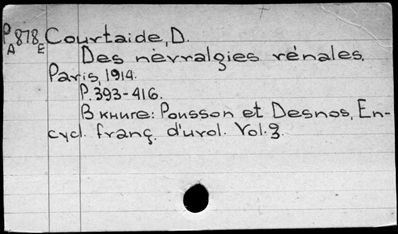 P
A 878 E Courtaide, D.
Des nèvralgies rénales.
Paris, 1914.
P. 393-416.
В книге: Pousson et Desnos, En-
cycl. franç. d'urol. Vol. 3.